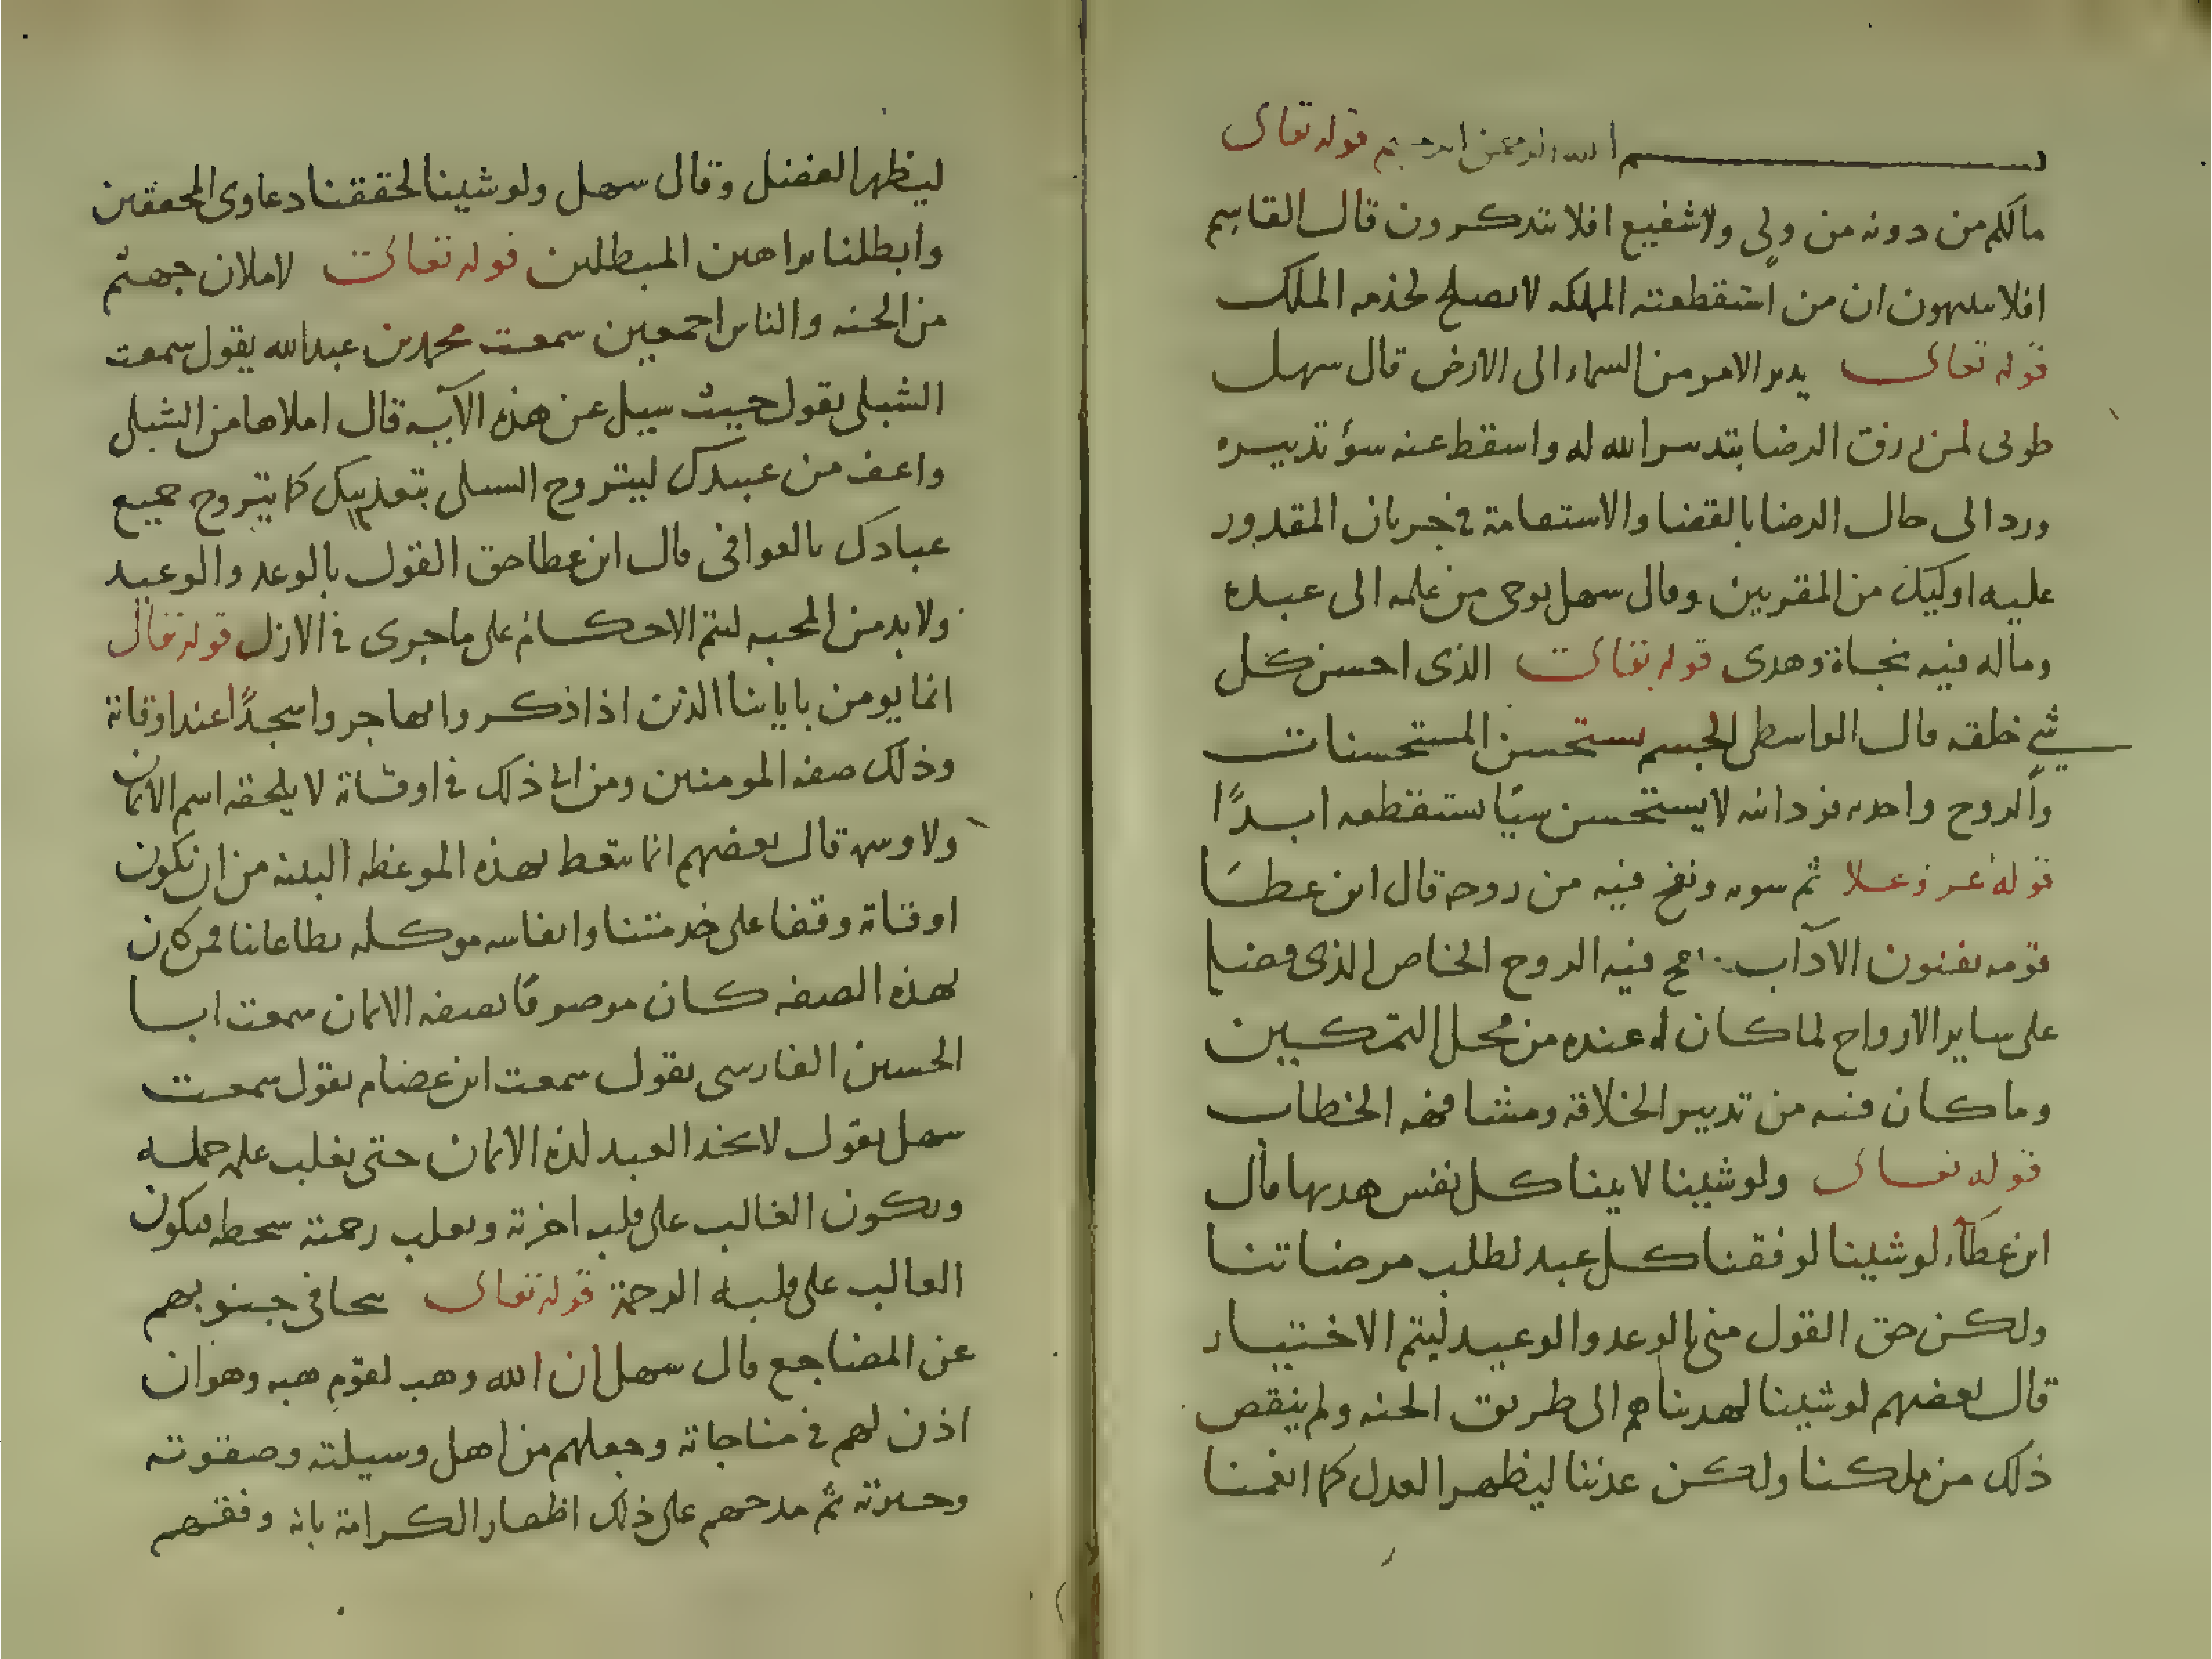 بسم الله الرحمن الرحيم قوله تعالى
مالكم من دونه من ولى ولا شفيع افلا تتذكرون قال القاسم
افلا ينتبهون ان من استقطعته المملكه لا يصلح لخدمه الملك
قوله تعالى يدبر الامر من السماء الى الارض قال سهل
طوبى لمن رزق الرضا بتدبير الله له واسقط عنه سؤ تدبيره
ورد الى حال الرضا بالقضا والاستقامة في جريان المقدور
عليه اوليك من المقربين وقال سهل يوحى من علمه الى عبده
وماله فيه نجاة وهدى قوله تعالى الذى احسن كل
شيء خلقه قال الواسطى الجسم يستحسن المستحسنات
والروح واحديه فردانيه لا يستحسن شيًا يستقطعه ابدًا
قوله عز وعلا ثم سويه ونفخ فيه من روحه قال ابن عطا
قومه بفنون الآداب ونفخ فيه الروح الخاص الذى فضله
على ساير الارواح لما كان له عنده من محل التمكين
وما كان فيه من تدبير الخلافة ومشافهه الخطاب
قوله تعالى ولو شينا لاتينا كل نفس هديها قال
ابن عطآء لو شينا لوفقنا كل عبد لطلب مرضاتنا
ولكن حق القول منى بالوعد والوعيد ليتم الاختيار
قال بعضهم لو شينا لهديناهم الى طريق الجنه ولم ينقص
ذلك من ملكنا ولكن عدلنا ليظهر العدل كما انعمنا
ليظهر الفضل وقال سهل ولو شينا لحققنا دعاوى المحققين
وابطلنا براهين المبطلين قوله تعالى لاملان جهنم
من الجنه والناس اجمعين سمعت محمد بن عبد الله يقول سمعت
الشبلى يقول حيث سيل عن هذه الآيه قال املاها من الشبلى
واعف من عبيدك ليتروح الشبلى بتعذيبك كما يتروح جميع
عبادك بالعوافى قال ابن عطا حق القول بالوعد والوعيد
ولابد من المحبه لتتم الاحكام على ما جرى في الازل قوله تعالى
انما يومن باياتنا الذين اذا ذكروا بها جروا سجدًا عند اوقاته
وذلك صفه المومنين ومن ابى ذلك في اوقاته لا يلحقه اسم الايمان
ولا وسمه قال بعضهم انما يتعظ بهذه الموعظه البينه من ان تكون
اوقاته وقفا على خدمتنا وانفاسه موكله بطاعاتنا فمن كان
بهذه الصفه كان موصوفًا بصفه الايمان سمعت ابا
الحسين الفارسى يقول سمعت ابن عصام يقول سمعت
سهل يقول لا يجد العبد لذه الايمان حتى يغلب علمه جهله
ويكون الغالب على قلبه اخرته وتغلب رحمته سخطه فيكون
الغالب على قلبه الرحمة قوله تعالى تتجافى جنوبهم
عن المضاجع قال سهل ان الله وهب لقوم هبه وهو ان
اذن لهم في مناجاته وجعلهم من اهل وسيلته وصفوته
وخيرته ثم مدحهم على ذلك اظهار الكرامة بانه وفقهم